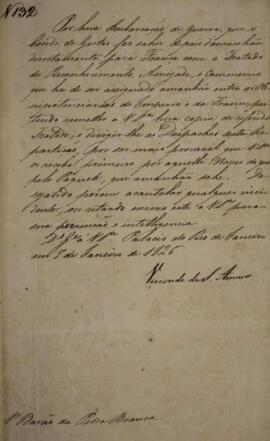 Nº 132
Por hua Embarcação de Guerra, que o
Conde de Gestas faz sahir depois d'amanhãa
directamente para França com o Tratado
de Reconhecimento, Amizade, e Commercio
que ha de ser assignado amanhãa entre os Ple-
nipotenciarios do Imperio e da França, per-
tendo remetter a V.Sª hua copia do referido
Tratado, e dirigir-lhe os Despachos desta Re-
partição, por ser mais provavel que V.Sª
os receba primeiro por aquelle Navio do que
pelo Paquete, que amanhãa sahe. De-
sejando porem acautelar qualquer inci-
dente, ou retardo escrevo este a V.Sª para
sua prevenção e intelligencia.
Ds. Ge. a V.Sª Palacio do Rio de Janeiro
em 7 de Janeiro de 1826
Visconde de S. Amaro
Sr. Barão da Pedra Branca